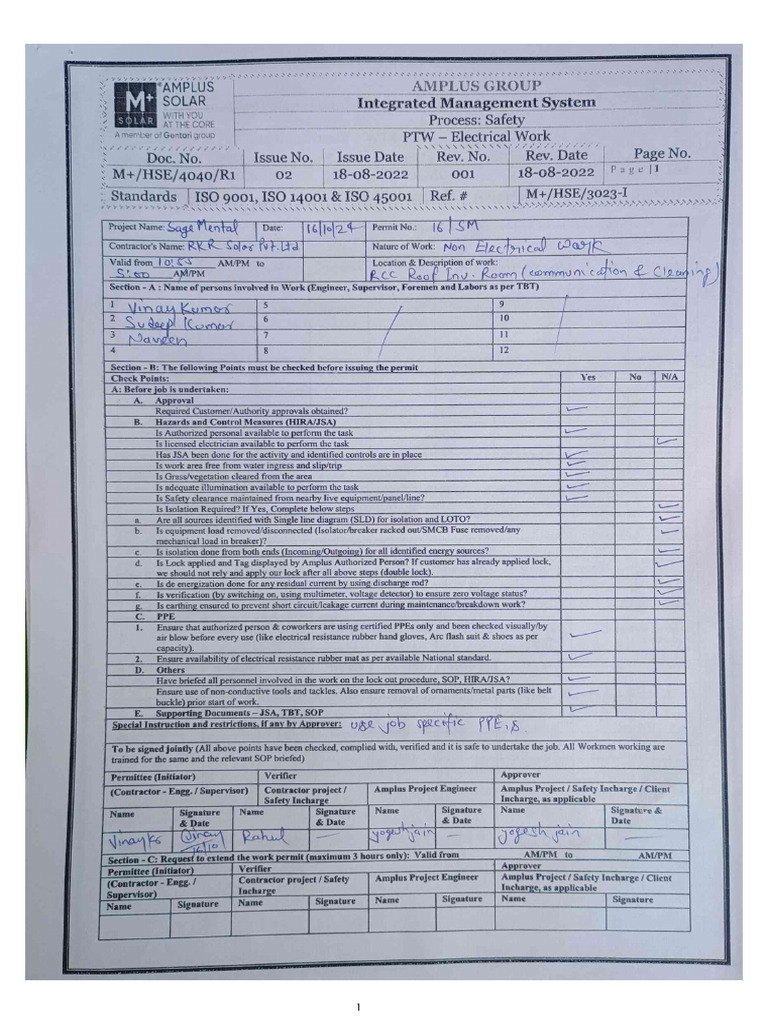 AMPLUS
SOLAR
WITH YOU
AT THE CORE
M+
SOLAR
A member of Gentari group
AMPLUS GROUP
Integrated Management System
Process: Safety
PTW – Electrical Work
Doc. No. Issue No. Issue Date Rev. No. Rev. Date Page No.
M+/HSE/4040/R1 02 18-08-2022 001 18-08-2022 Page | 1
Standards ISO 9001, ISO 14001 & ISO 45001 Ref. # M+/HSE/3023-I
Project Name: Sage Mental Date: 16/10/24 Permit No.: 16/SM
Contractor's Name: RKR Solar Pvt.Ltd Nature of Work: Non Electrical work
Valid from 10:55 AM/PM to Location & Description of work:
5:00 AM/PM RCC Roof Inv. Room (communication & Cleaning)
Section - A : Name of persons involved in Work (Engineer, Supervisor, Foremen and Labors as per TBT)
1 Vinay Kumar 5 9
2 Sudeep Kumar 6 10
3 Naveen 7 11
4 8 12
Section - B: The following Points must be checked before issuing the permit
Check Points: Yes No N/A
A: Before job is undertaken:
A. Approval
Required Customer/Authority approvals obtained?
B. Hazards and Control Measures (HIRA/JSA)
Is Authorized personal available to perform the task
Is licensed electrician available to perform the task
Has JSA been done for the activity and identified controls are in place
Is work area free from water ingress and slip/trip
Is Grass/vegetation cleared from the area
Is adequate illumination available to perform the task
Is Safety clearance maintained from nearby live equipment/panel/line?
Is Isolation Required? If Yes, Complete below steps
a. Are all sources identified with Single line diagram (SLD) for isolation and LOTO?
b. Is equipment load removed/disconnected (Isolator/breaker racked out/SMCB Fuse removed/any
mechanical load in breaker)?
c. Is isolation done from both ends (Incoming/Outgoing) for all identified energy sources?
d. Is Lock applied and Tag displayed by Amplus Authorized Person? If customer has already applied lock,
we should not rely and apply our lock after all above steps (double lock).
e. Is de energization done for any residual current by using discharge rod?
f. Is verification (by switching on, using multimeter, voltage detector) to ensure zero voltage status?
g. Is earthing ensured to prevent short circuit/leakage current during maintenance/breakdown work?
C. PPE
1. Ensure that authorized person & coworkers are using certified PPEs only and been checked visually/by
air blow before every use (like electrical resistance rubber hand gloves, Arc flash suit & shoes as per
capacity).
2. Ensure availability of electrical resistance rubber mat as per available National standard.
D. Others
Have briefed all personnel involved in the work on the lock out procedure, SOP, HIRA/JSA?
Ensure use of non-conductive tools and tackles. Also ensure removal of ornaments/metal parts (like belt
buckle) prior start of work.
E. Supporting Documents – JSA, TBT, SOP
Special Instruction and restrictions, if any by Approver: use job specific PPE,s.
To be signed jointly (All above points have been checked, complied with, verified and it is safe to undertake the job. All Workmen working are
trained for the same and the relevant SOP briefed)
Permittee (Initiator) Verifier Approver
(Contractor - Engg. / Supervisor) Contractor project / Amplus Project Engineer Amplus Project / Safety Incharge / Client
Safety Incharge Incharge, as applicable
Name Signature Name Signature Name Signature Name Signature &
& Date & Date & Date Date
Vinay Ks Vinay Rahul — yogesh jain — yogesh jain —
16/10
Section - C: Request to extend the work permit (maximum 3 hours only): Valid from AM/PM to AM/PM
Permittee (Initiator) Verifier Approver
(Contractor - Engg. / Contractor project / Safety Amplus Project Engineer Amplus Project / Safety Incharge / Client
Supervisor) Incharge Incharge, as applicable
Name Signature Name Signature Name Signature Name Signature
1